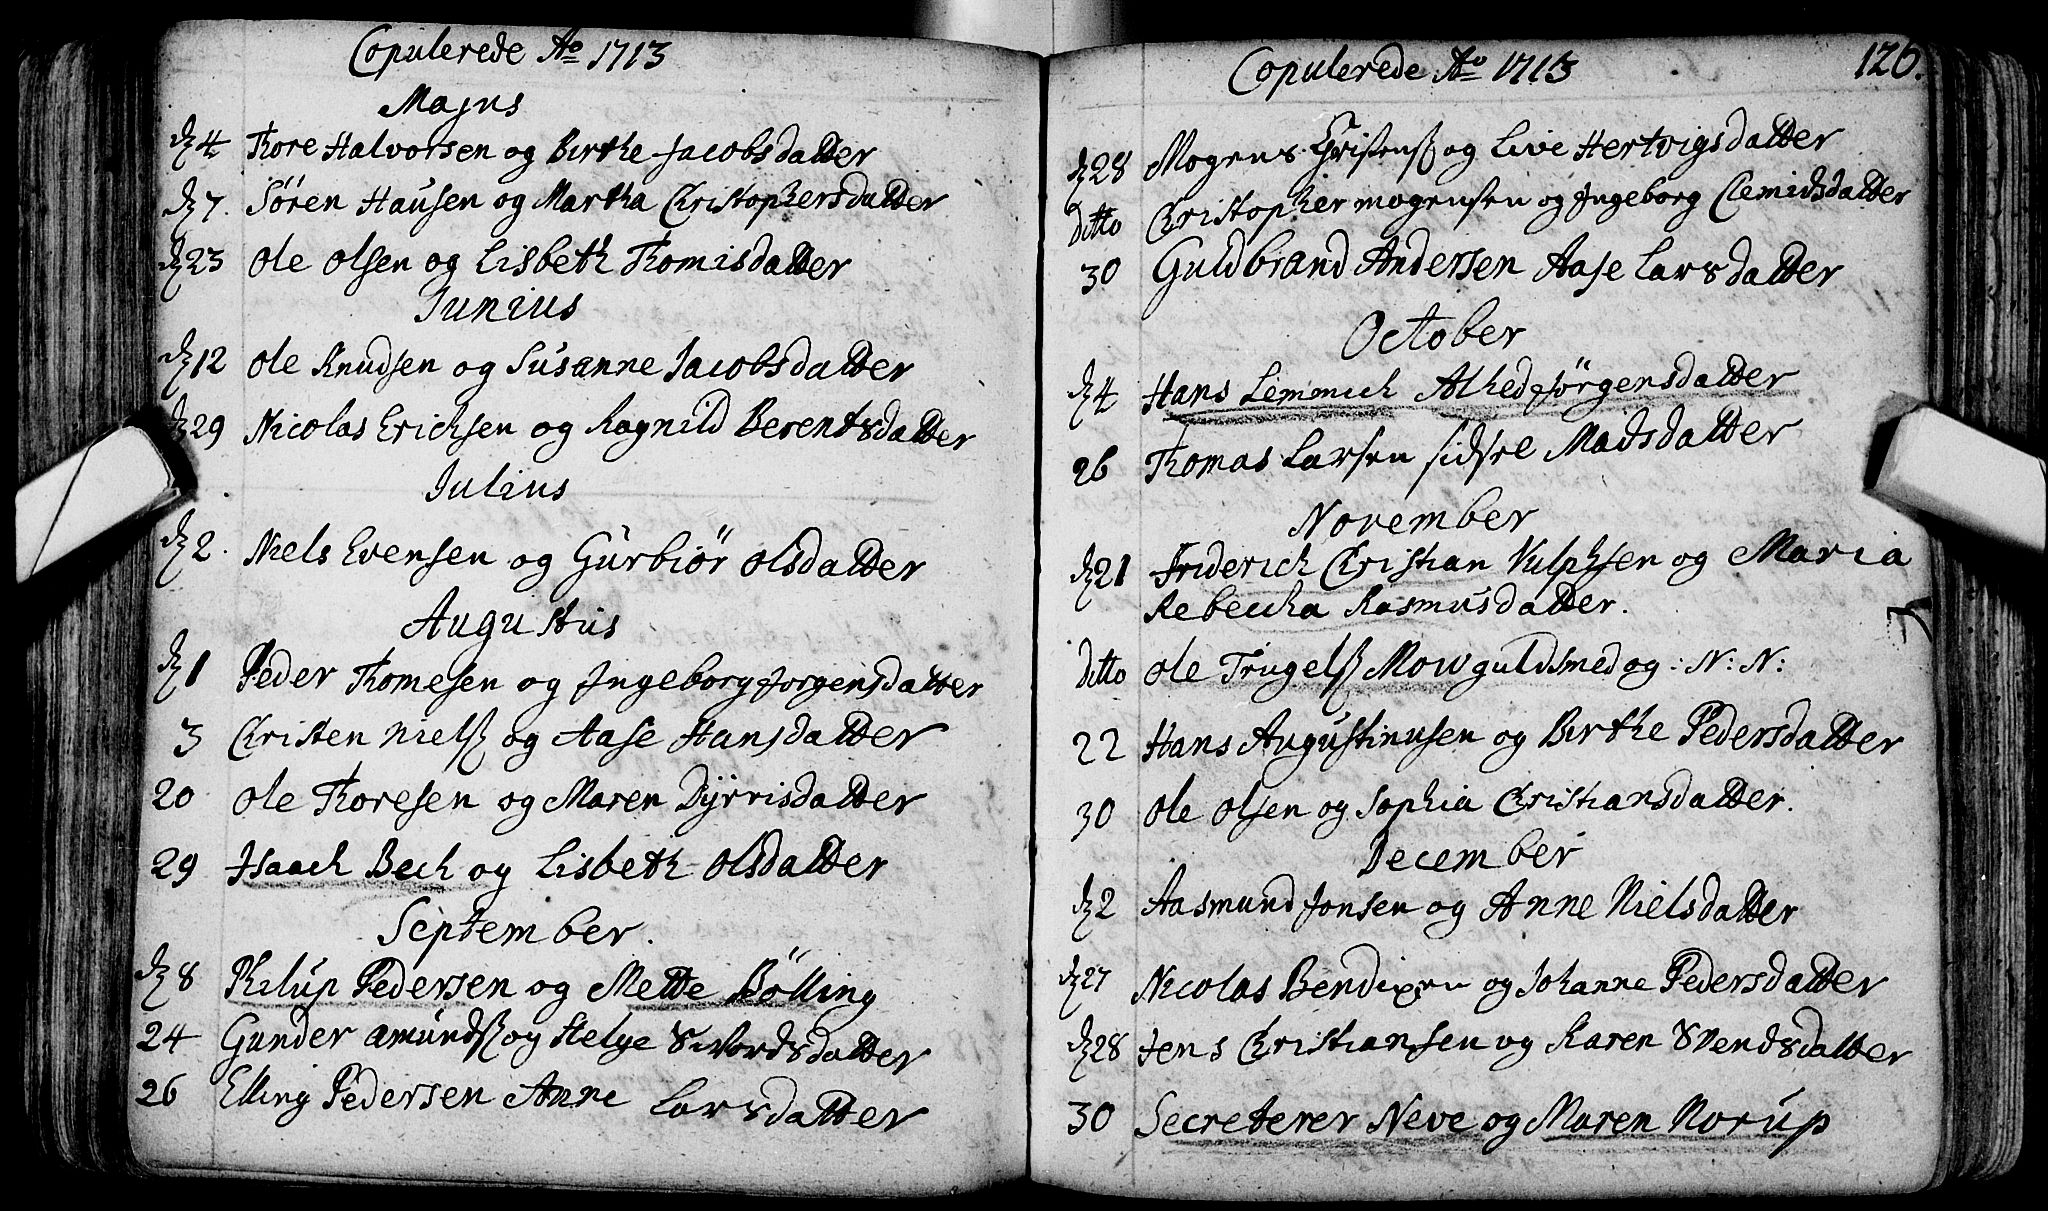 Copulerede Ao 1713
Majus
dz 4 Thore Halvorsen og Birthe Jacobsdatter
dz 7. Sören Hausen og Martha Christophersdatter
dz 23 Ole Olsen og Lisbeth Thomisdatter
Junius
dz 12 Ole Knudsen og Susanne Jacobsdatter
dz 29 Nicolas Erichsen og Ragnild Berentsdatter
Julius
dz 2. Niels Evensen og Gurbiör Olsdatter
Augustus
dz 1 Peder Thomesen og Ingeborg Jorgensdatter
3 Christen Nielsß og Aase Hansdatter
20 Ole Thoresen og Maren Dÿrrisdatter
29 Isaach Bech og Lisbeth Olsdatter
September.
dz 8 Philup Pedersen og Mette Bölling
24 Gunder Amundsß og Helge Sivordsdatter
26 Elling Pedersen Anne Larsdatter
Copulerede Ao 1713 126.
dz 28 Mogens Christensß og Live Hertvigsdatter
Ditto Christopher Mogensen og Ingeborg Clemidsdatter
30 Guldbrand Andersen Aase Larsdatter
October
dz 4 Hans Lemmich Alhed Jörgensdatter
26 Thomas Larsen Sidsel Madsdatter
November
dz 21 Friderich Christian Vulphsen og Maria
Rebecha Rasmusdatter.
Ditto Ole Trugelsß Mow guldsmed og : N: N:
22 Hans Augustinusen og Birthe Pedersdatter
30 Ole Olsen og Sophia Christiansdatter.
December
dz 2 Aasmund Jonsen og Anne Nielsdatter
dz 27 Nicolas Bendixen og Johanne Pedersdatter
dz 28 Jens Christiansen og Karen Svendsdatter
30 Secreterer Neve og Maren Norup